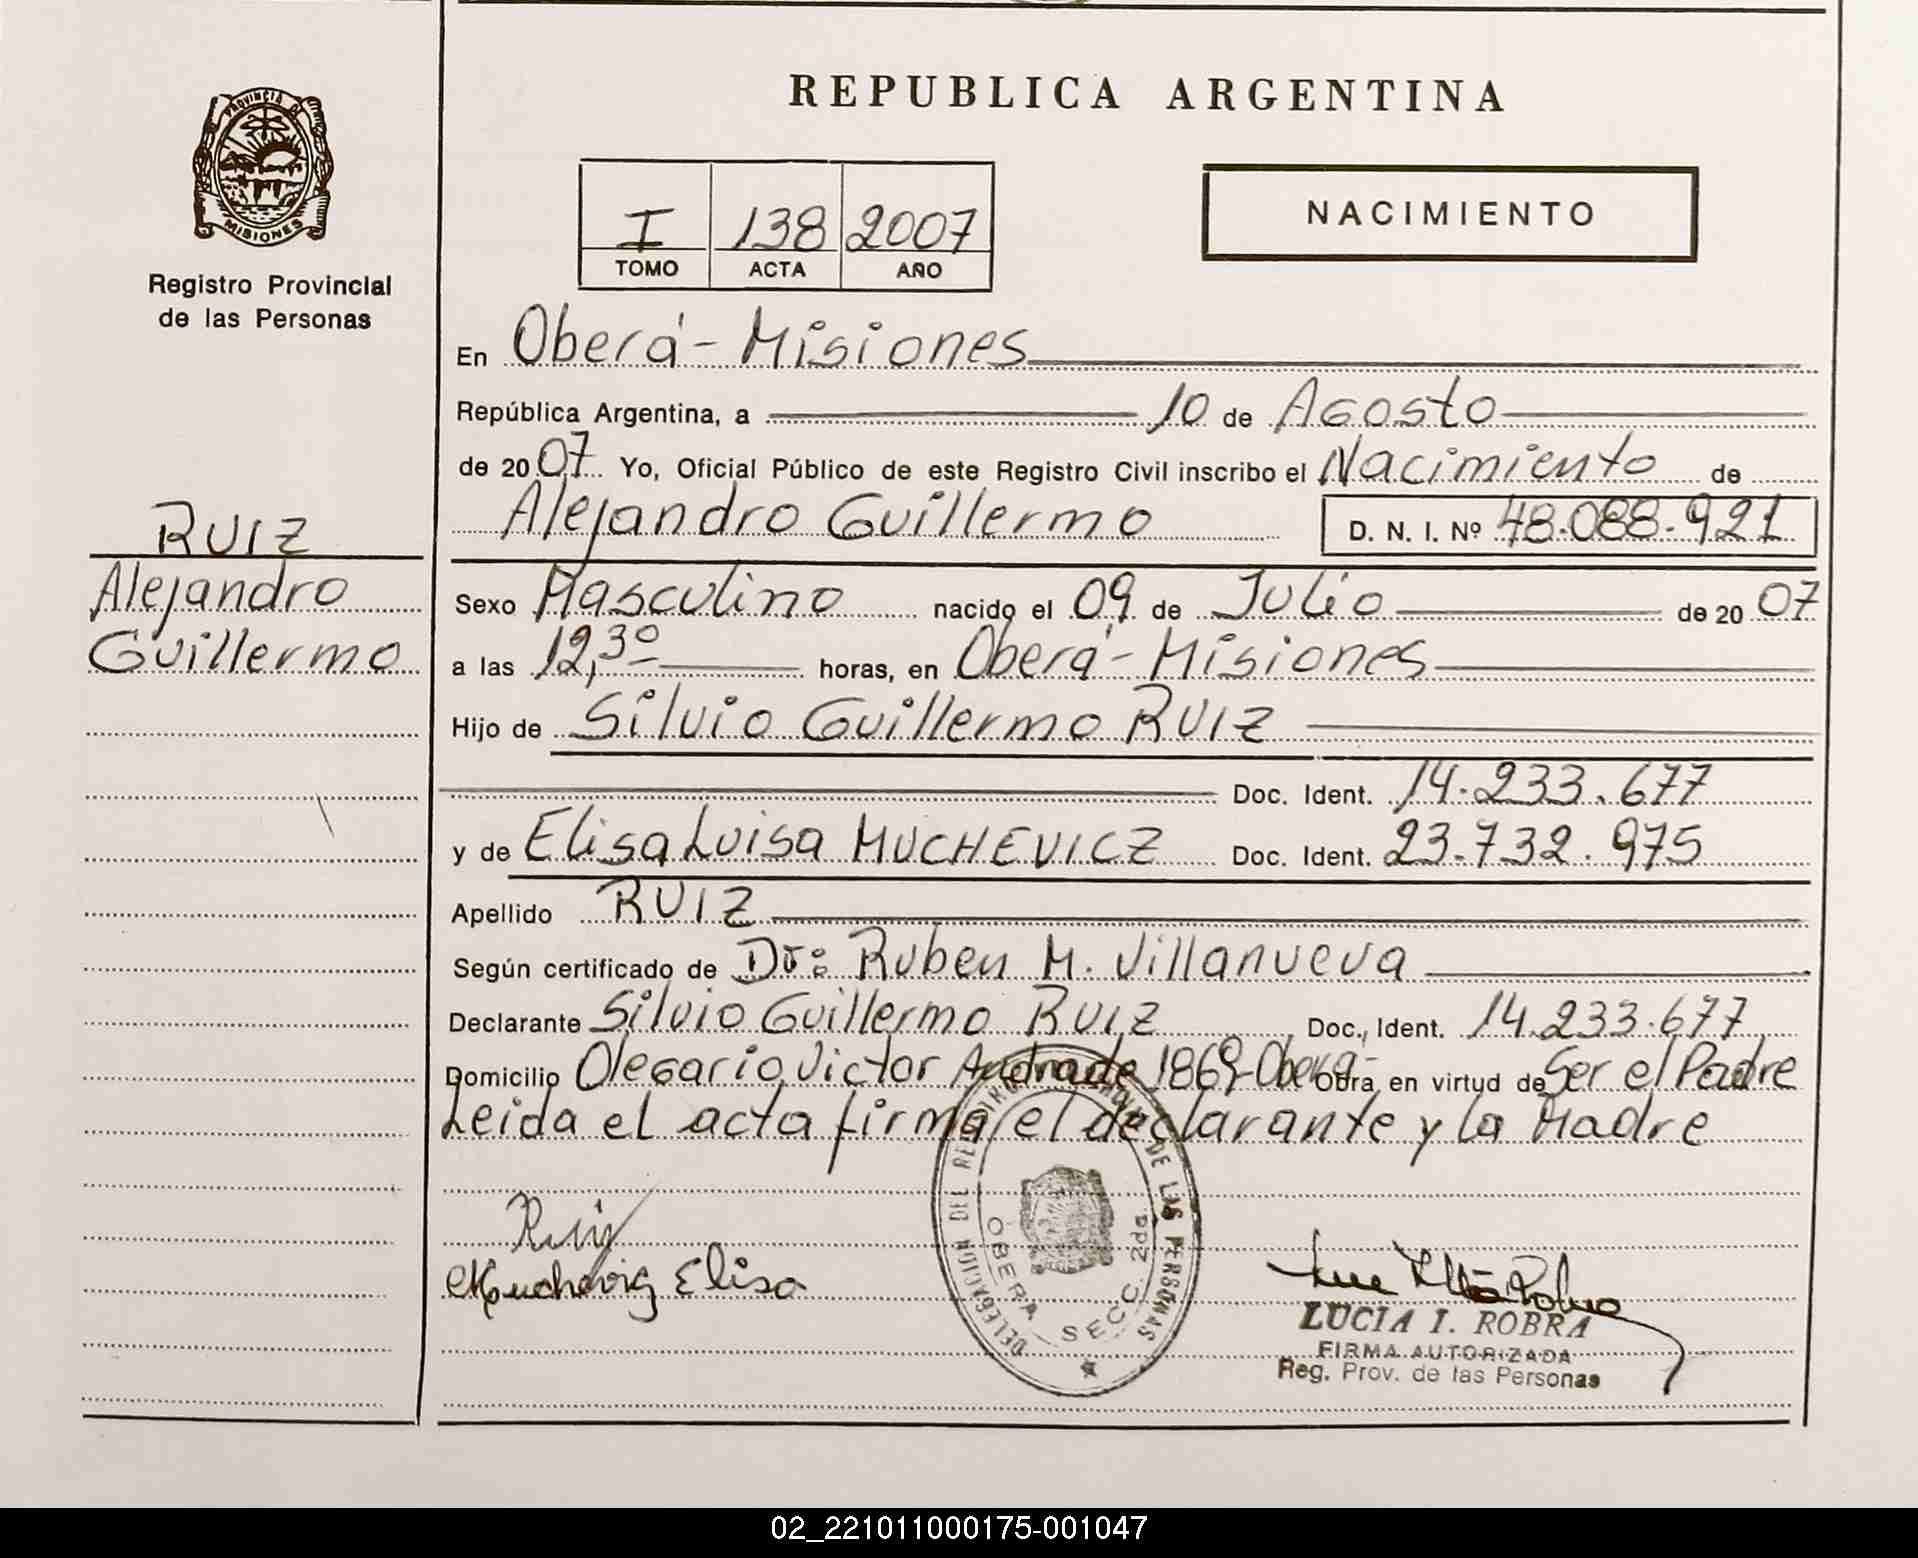 REPUBLICA ARGENTINA
PROVINCIA DE
MISIONES
Registro Provincial
de las Personas
I 138 2007
TOMO ACTA AÑO
NACIMIENTO
En Oberá - Misiones
República Argentina, a 10 de Agosto
de 2007 Yo, Oficial Público de este Registro Civil inscribo el Nacimiento de
Alejandro Guillermo D. N. I. Nº 48.088.921
RUIZ
Alejandro
Guillermo
Sexo Masculino nacido el 09 de Julio de 2007
a las 12,30 horas, en Oberá - Misiones
Hijo de Silvio Guillermo RUIZ
Doc. Ident. 14.233.677
y de Elisa Luisa MUCHEVICZ Doc. Ident. 23.732.975
Apellido RUIZ
Según certificado de Dr: Ruben M. Villanueva
Declarante Silvio Guillermo RUIZ Doc. Ident. 14.233.677
Domicilio Olegario Victor Andrade 1869-Oberá- Obra en virtud de Ser el Padre
Leida el acta firma el declarante y la Madre
Ruiz
Muchevig Elisa
DELEGACION DEL REGISTRO PROVINCIAL DE LAS PERSONAS
OBERA SECC. 2da.
LUCIA I. ROBRA
FIRMA AUTORIZADA
Reg. Prov. de las Personas
02_221011000175-001047